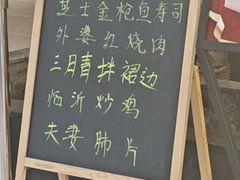 芝士金枪鱼寿司
外婆红烧肉
三日青拌裙边
临沂炒鸡
夫妻肺片